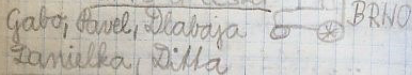 Gabo, Pavel, Dlabaja BRNO
Danielka, Ditta